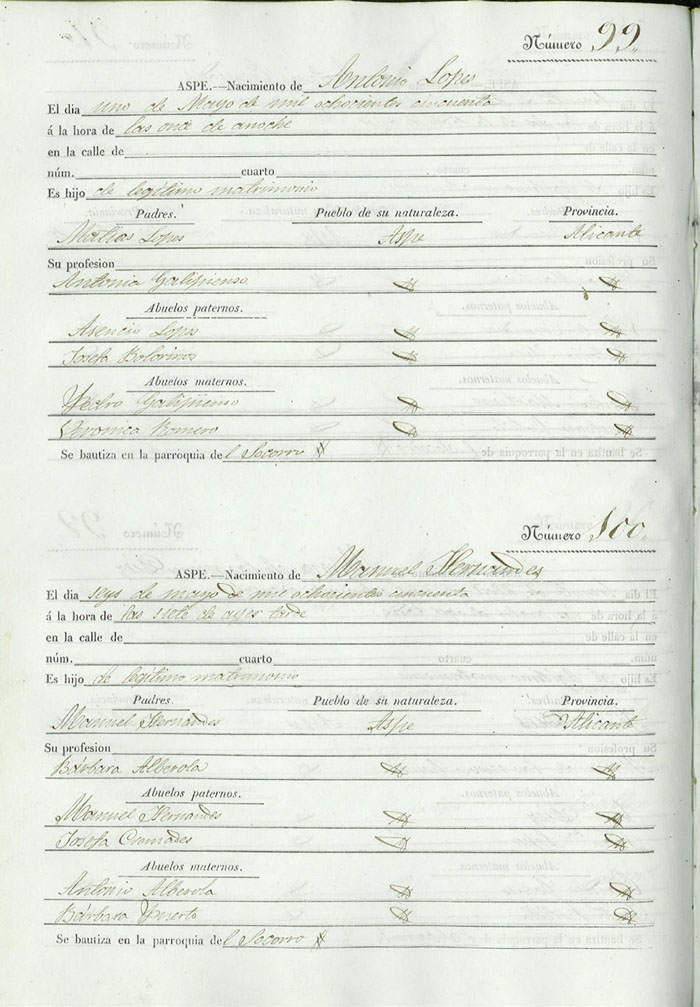 Número 99.
ASPE.—Nacimiento de Antonio Lopes
El dia uno de Mayo de mil ochocientos cincuenta
á la hora de las once de anoche
en la calle de
núm. cuarto
Es hijo de legítimo matrimonio
Padres. Pueblo de su naturaleza. Provincia.
Matias Lopes Aspe Alicante
Su profesion
Antonia Galipienso
Abuelos paternos.
Asencio Lopes
Josefa Bolorinos
Abuelos maternos.
Pedro Galipienso
Veronica Romero
Se bautiza en la parroquia del Socorro
Número 100.
ASPE.—Nacimiento de Manuel Hernandes
El dia seys de mayo de mil ochocientos cincuenta
á la hora de las siete de ayer tarde
en la calle de
núm. cuarto
Es hijo de legítimo matrimonio
Padres. Pueblo de su naturaleza. Provincia.
Manuel Hernandes Aspe Alicante
Su profesion
Bárbara Alberola
Abuelos paternos.
Manuel Hernandes
Josefa
Abuelos maternos.
Antonio Alberola
Bárbara
Se bautiza en la parroquia del Socorro